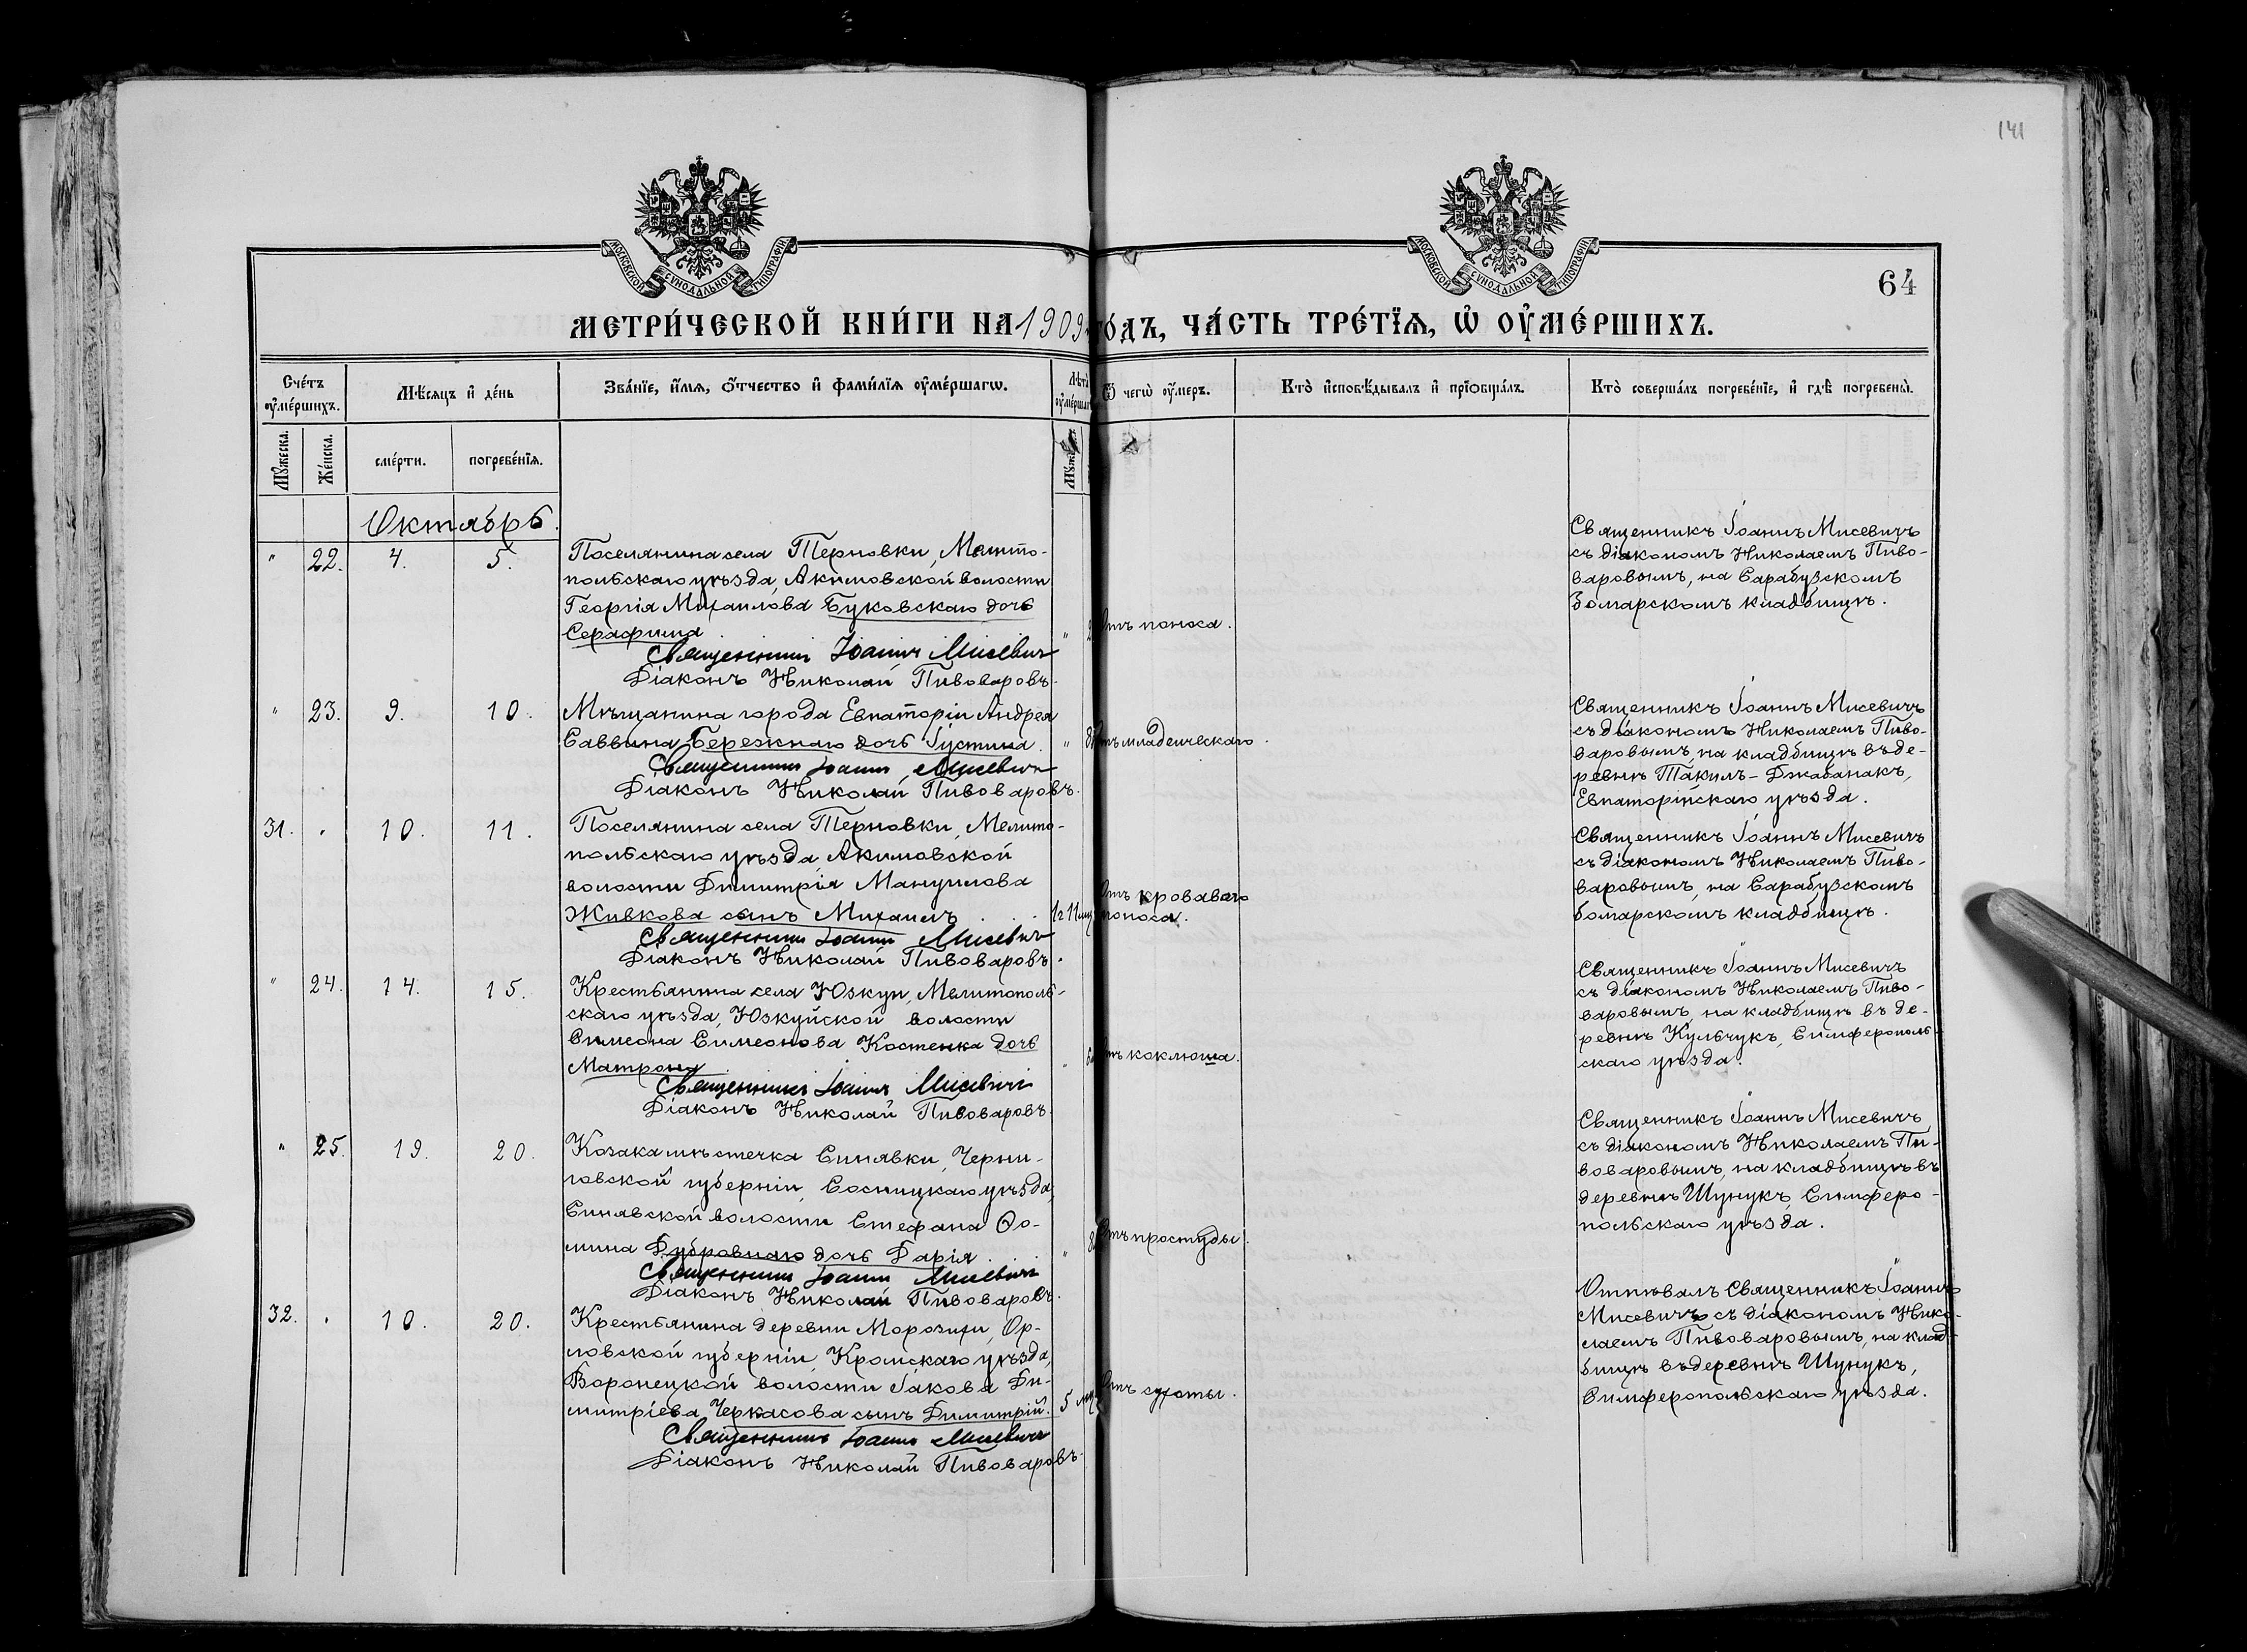 141
МОСКОВСКОЙ СУНОДАЛЬНОЙ ТИПОГРАФІИ
МОСКОВСКОЙ СУНОДАЛЬНОЙ ТИПОГРАФІИ
64
МЕТРИ́ЧЕСКОЙ КНИ́ГИ НА 1909 го́дъ, ЧА́СТЬ ТРЕ́ТЇѦ, Ѡ҆ ОУ҆МЕ́РШИХЪ.
Счё́тъ оу҆ме́ршихъ.
Мѣ́сѧцъ и҆ де́нь
Зва́нїе, и҆́мѧ, ѻ҆́тчество и҆ фами́лїѧ оу҆ме́ршагѡ.
Лѣ́та оу҆ме́ршаг
Ѿ чегѡ̀ оу҆́меръ.
Кто̀ и҆сповѣ́дывалъ и҆ прїѡбща́лъ.
Кто̀ соверша́лъ погребе́нїе, и҆ гдѣ̀ погребены̀.
Мꙋ́жеска.
Же́нска.
сме́рти.
погребе́нїѧ.
Октябрь.
" 22. 4. 5.
Поселянина села Терновки, Мелито-
польскаго уѣзда, Акимовской волости
Георгія Михаилова Буковскаго дочь
Серафима
" Отъ поноса.
Священникъ Іоаннъ Мисевичъ
Діаконъ Николай Пивоваровъ.
Священникъ Іоаннъ Мисевичъ
съ діакономъ Николаемъ Пиво-
варовымъ, на Сарабузскомъ
Болгарскомъ кладбищѣ.
" 23. 9. 10.
Мѣщанина города Евпаторіи Андрея
Саввина Бережнаго дочь Іустина.
" Отъ младенческаго.
Священникъ Іоаннъ Мисевичъ
Діаконъ Николай Пивоваровъ.
Священникъ Іоаннъ Мисевичъ
съ діакономъ Николаемъ Пиво-
варовымъ, на кладбищѣ въ де-
ревнѣ Такилъ-Джабанакъ,
Евпаторійскаго уѣзда.
31. " 10. 11.
Поселянина села Терновки, Мелито-
польскаго уѣзда, Акимовской
волости Димитрія Мануилова
Живкова сынъ Михаилъ
1 г 11 мц
Отъ кроваваго
поноса.
Священникъ Іоаннъ Мисевичъ
Діаконъ Николай Пивоваровъ.
Священникъ Іоаннъ Мисевичъ
съ діакономъ Николаемъ Пиво-
варовымъ, на Сарабузскомъ
Болгарскомъ кладбищѣ.
" 24. 14. 15.
Крестьянина села Юзкуи, Мелитополь-
скаго уѣзда, Юзкуйской волости
Симеона Симеонова Костенка дочь
Матрона
" Отъ коклюша.
Священникъ Іоаннъ Мисевичъ
Діаконъ Николай Пивоваровъ.
Священникъ Іоаннъ Мисевичъ
съ діакономъ Николаемъ Пиво-
варовымъ, на кладбищѣ въ де-
ревнѣ Кульчукъ, Симферополь-
скаго уѣзда.
" 25. 19. 20.
Козака мѣстечка Синявки, Черни-
говской губерніи, Сосницкаго уѣзда,
Синявской волости Стефана Ѳо-
мина Дубровнаго дочь Дарія
" Отъ простуды.
Священникъ Іоаннъ Мисевичъ
Діаконъ Николай Пивоваровъ.
Священникъ Іоаннъ Мисевичъ
съ діакономъ Николаемъ Пи-
воваровымъ, на кладбищѣ въ
деревнѣ Шунукъ, Симферо-
польскаго уѣзда.
32. " 10. 20.
Крестьянина деревни Морозихи, Ор-
ловской губерніи, Кромскаго уѣзда,
Воронецкой волости Іакова Ди-
митріева Черкасова сынъ Димитрій.
5 мц
Отъ сухоты.
Священникъ Іоаннъ Мисевичъ
Діаконъ Николай Пивоваровъ.
Отпѣвалъ Священникъ Іоаннъ
Мисевичъ съ діакономъ Нико-
лаемъ Пивоваровымъ, на клад-
бищѣ въ деревнѣ Шунукъ,
Симферопольскаго уѣзда.